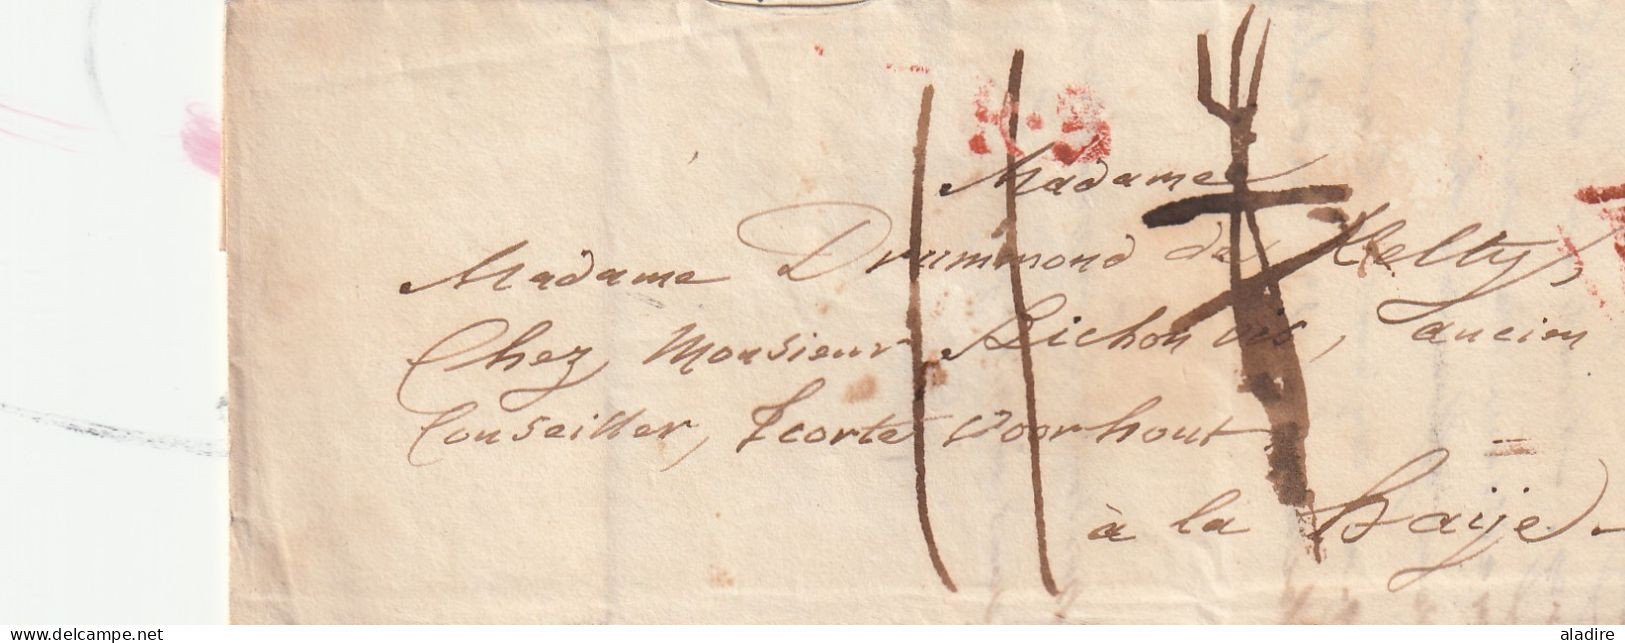 R·3
Madame
Madame Drummond de Melty,
Chez Monsieur Bichon vis, ancien
Conseiller, Kcorte Voorhout
à la Haije
delcampe.net
aladire